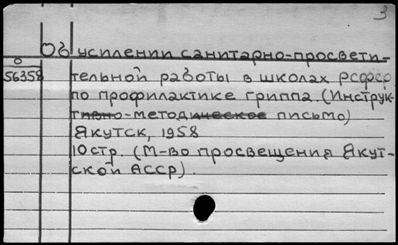 3
Об усилении санитарно-просвети-
о
56358 тельной работы в школах РСФСР
по профилактике гриппа. (Инструк-
тивно-методическое письмо)
Якутск, 1958
10 стр. (М-во просвещения Якут-
ской АССР).